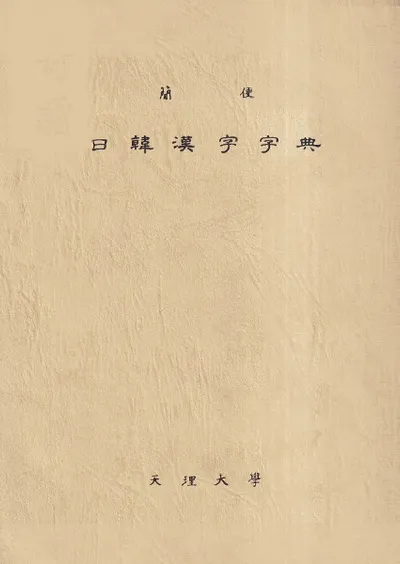 簡便
日韓漢字字典
天理大學